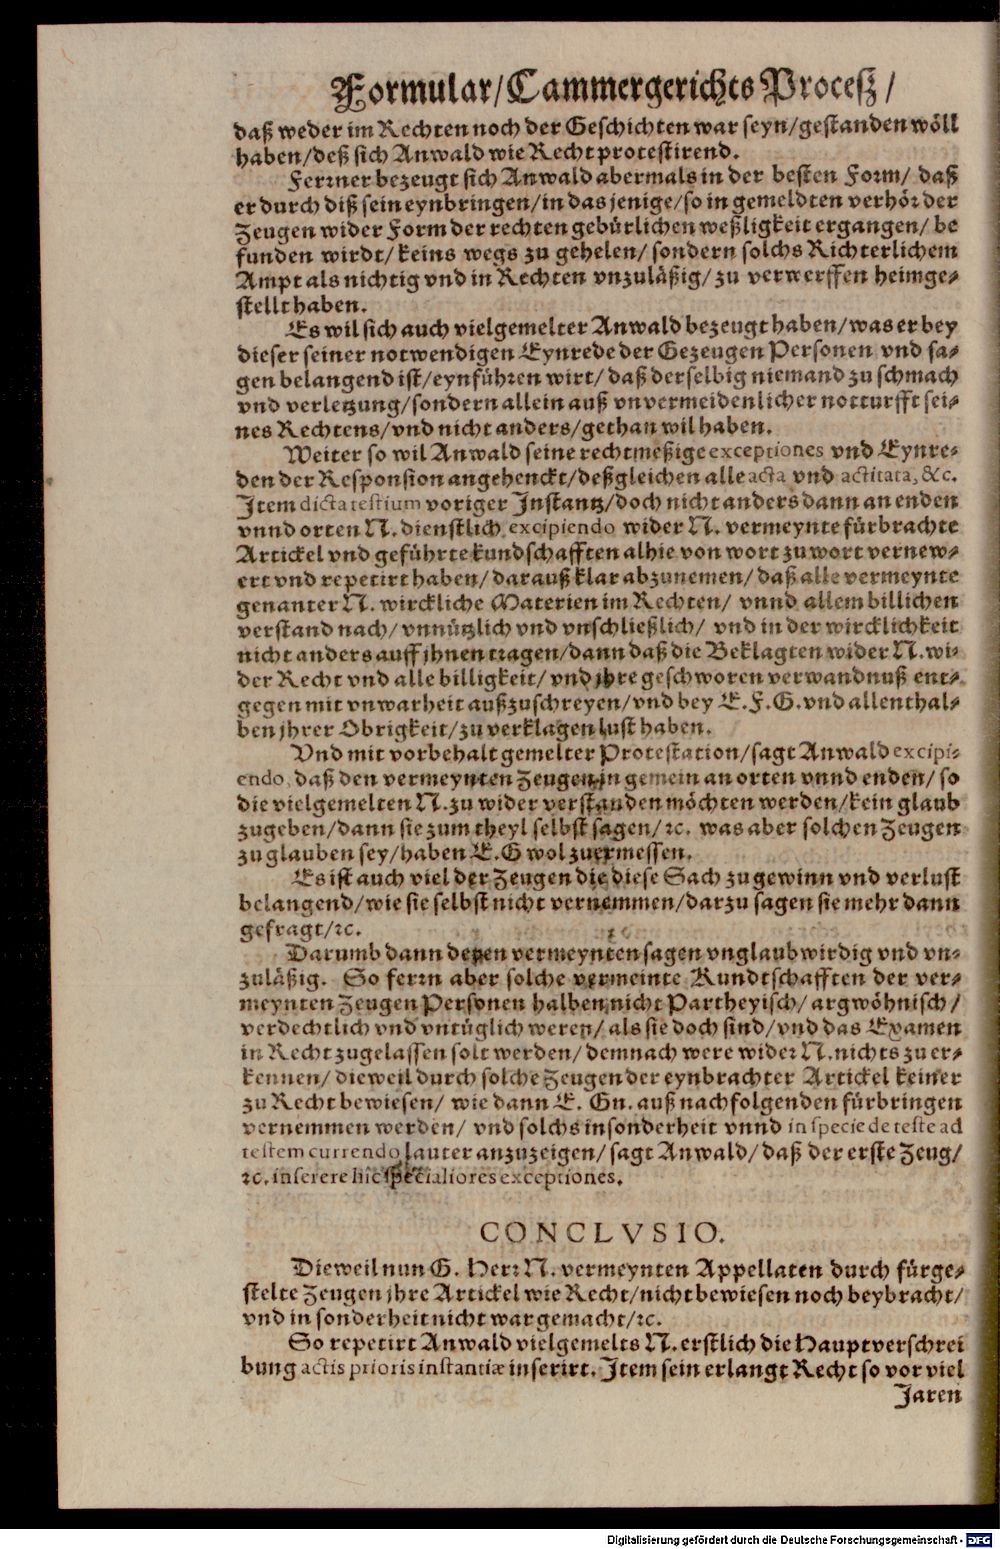 Formular/Cammergerichts Proceſz/
daß weder im Rechten noch der Geschichten war seyn/gestanden wöll
haben/deß sich Anwald wie Recht protestirend.
Ferrner bezeugt sich Anwald abermals in der besten Form/ daß
er durch diß sein eynbringen/in das jenige/so in gemeldten verhör der
Zeugen wider Form der rechten gebürlichen weßligkeit ergangen/ be
funden wirdt/keins wegs zu gehelen/sondern solchs Richterlichem
Ampt als nichtig vnd in Rechten vnzuläßig/zu verwerffen heimge-
stellt haben.
Es wil sich auch vielgemelter Anwald bezeugt haben/was er bey
dieser seiner notwendigen Eynrede der Gezeugen Personen vnd sa-
gen belangend ist/eynführen wirt/daß derselbig niemand zu schmach
vnd verletzung/sondern allein auß vnvermeidenlicher notturfft sei-
nes Rechtens/vnd nicht anders/gethan wil haben.
Weiter so wil Anwald seine rechtmeßige exceptiones vnd Eynre-
den der Responsion angehenckt/deßgleichen alle acta vnd actitata, &c.
Item dicta testium voriger Instantz/doch nicht anders dann an enden
vnnd orten N. dienstlich excipiendo wider N. vermeynte fürbrachte
Artickel vnd geführte kundschafften alhie von wort zu wort vernew-
ert vnd repetirt haben/darauß klar abzunemen/daß alle vermeynte
genanter N. wirckliche Materien im Rechten/ vnnd allem billichen
verstand nach/vnnützlich vnd vnschließlich/ vnd in der wircklichkeit
nicht anders auff jhnen tragen/dann daß die Beklagten wider N. wi-
der Recht vnd alle billigkeit/vnd jhre geschworen verwandnuß ent-
gegen mit vnwarheit außzuschreyen/vnd bey E.F.G. vnd allenthal-
ben jhrer Obrigkeit/zu verklagen lust haben.
Vnd mit vorbehalt gemelter Protestation/sagt Anwald excipi-
endo, daß den vermeynten Zeugen in gemein an orten vnnd enden/ so
die vielgemelten N. zu wider verstanden möchten werden/kein glaub
zugeben/dann sie zum theyl selbst sagen/ꝛc. was aber solchen Zeugen
zu glauben sey/haben E.G wol zuermessen.
Es ist auch viel der Zeugen die diese Sach zu gewinn vnd verlust
belangend/wie sie selbst nicht vernemmen/darzu sagen sie mehr dann
gefragt/ꝛc.
Darumb dann deren vermeynten sagen vnglaubwirdig vnd vn-
zuläßig. So ferrn aber solche vermeinte Kundtschafften der ver-
meynten Zeugen Personen halben nicht Partheyisch/ argwöhnisch/
verdechtlich vnd vntüglich weren/ als sie doch sind/vnd das Examen
in Recht zugelassen solt werden/demnach were wider N. nichts zu er-
kennen/ dieweil durch solche Zeugen der eynbrachter Artickel keiner
zu Recht bewiesen/ wie dann E. Gn. auß nachfolgenden fürbringen
vernemmen werden/ vnd solchs insonderheit vnnd in specie de teste ad
testem currendo lauter anzuzeigen/sagt Anwald/daß der erste Zeug/
ꝛc. inserere hic specialiores exceptiones.
CONCLVSIO.
Dieweil nun G. Herr N. vermeynten Appellaten durch fürge-
stelte Zeugen jhre Artickel wie Recht/nicht bewiesen noch beybracht/
vnd in sonderheit nicht war gemacht/ꝛc.
So repetirt Anwald vielgemelts N. erstlich die Hauptverschrei
bung actis prioris instantiæ inserirt. Item sein erlangt Recht so vor viel
Jaren
Digitalisierung gefördert durch die Deutsche Forschungsgemeinschaft - DFG